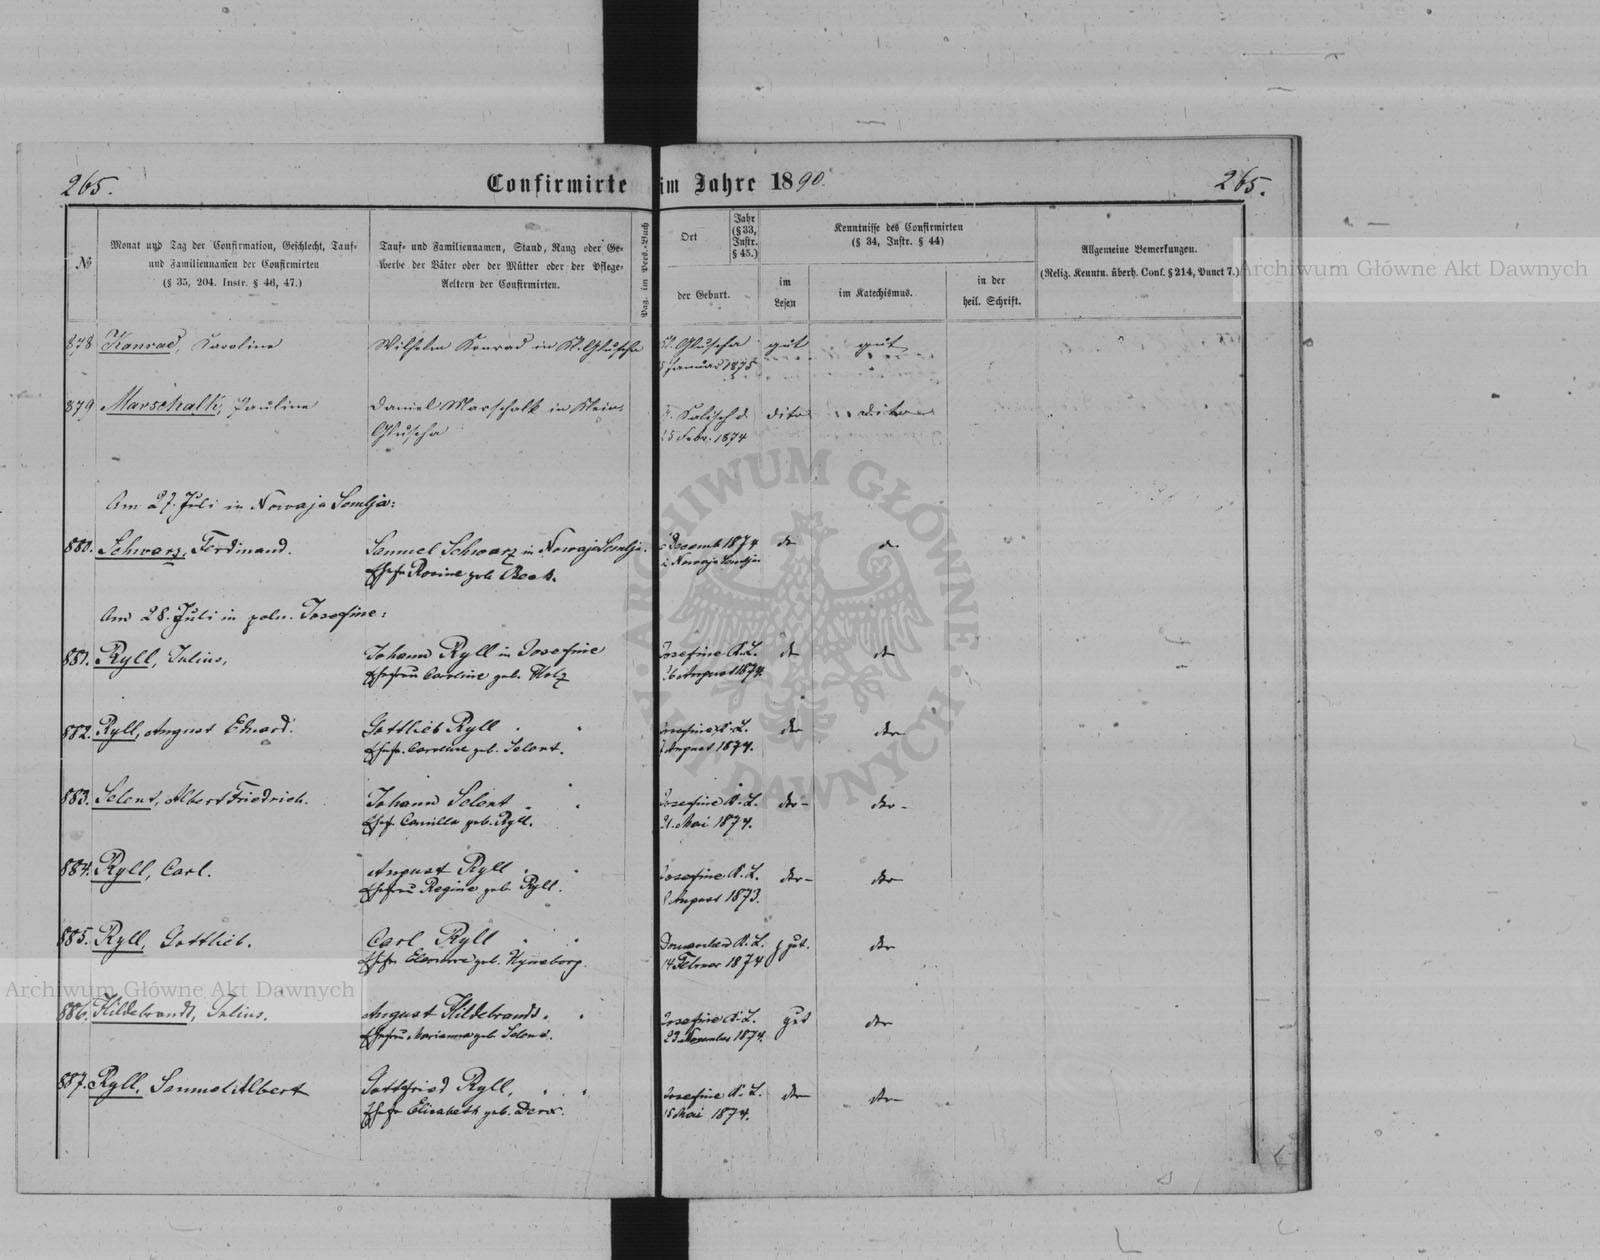 265.
Confirmirte im Jahre 1890.
265.
№
Monat und Tag der Confirmation, Geschlecht, Tauf-
und Familiennamen der Confirmirten
(§ 35, 204. Instr. § 46, 47.)
Tauf- und Familiennamen, Stand, Rang oder Ge-
werbe der Väter oder der Mütter oder der Pflege-
Aeltern der Confirmirten.
Pag. im Pers.-Buch
Ort
Jahr
(§ 33,
Instr.
§ 45.)
der Geburt.
Kenntnisse des Confirmirten
(§ 34, Instr. § 44)
im
Lesen
im Katechismus.
in der
heil. Schrift.
Allgemeine Bemerkungen.
(Relig. Kenntn. überh. Conf. § 214, Punct 7.)
878 Konrad, Karoline
Wilhelm Konrad in Kl. Gluscha
Kl. Gluscha gut gut
Januar 1875
879 Marschalk, Pauline
Daniel Marschalk in Klein-
Gluscha
dito dito
25 Febr. 1874
Am 27. Juli in Nowaja Semlja:
880. Schwarz, Ferdinand.
Samuel Schwarz in Nowaja Semlja.
Ehefr. Rosine geb.
Decemb 1874
Nowaja Semlja
Am 28. Juli in poln. Josefine:
881. Ryll, Julius,
Johann Ryll in Josefine
Ehefrau Caroline geb.
Josefine K. L.
August 1874.
882. Ryll, August Eduard.
Gottlieb Ryll
Ehefr. Caroline geb. Selent.
Josefine K. L.
August 1874.
883. Selent, Albert Friedrich.
Johann Selent
Ehefr. Camilla geb. Ryll.
Josefine K. L.
21. Mai 1874.
884. Ryll, Carl.
August Ryll
Ehefrau Regine geb. Ryll.
Josefine K. L.
August 1873.
885. Ryll, Gottlieb.
Carl Ryll
Ehefr. geb.
K. L. gut.
14 Februar 1874
886. Hildebrandt, Julius.
August Hildebrandt.
Ehefrau Marianna geb. Selent.
Josefine K. L. gut
23 November 1874.
887. Ryll, Samuel Albert
Gottfried Ryll,
Ehefr. Elisabeth geb.
Josefine K. L.
18 Mai 1874.
Archiwum Główne Akt Dawnych
Archiwum Główne Akt Dawnych
ARCHIWUM GŁÓWNE AKT DAWNYCH